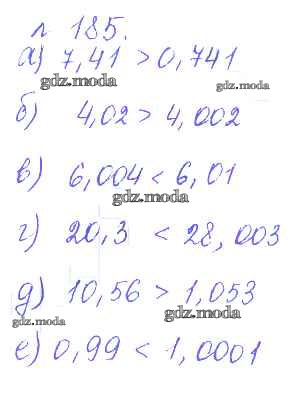 л 185.
а) 7,41 > 0,741
gdz.moda
gdz.moda
б) 4,02 > 4,002
в) 6,004 < 6,01
gdz.moda
г) 20,3 < 28,003
д) 10,56 > 1,053
gdz.moda
gdz.moda
е) 0,99 < 1,0001